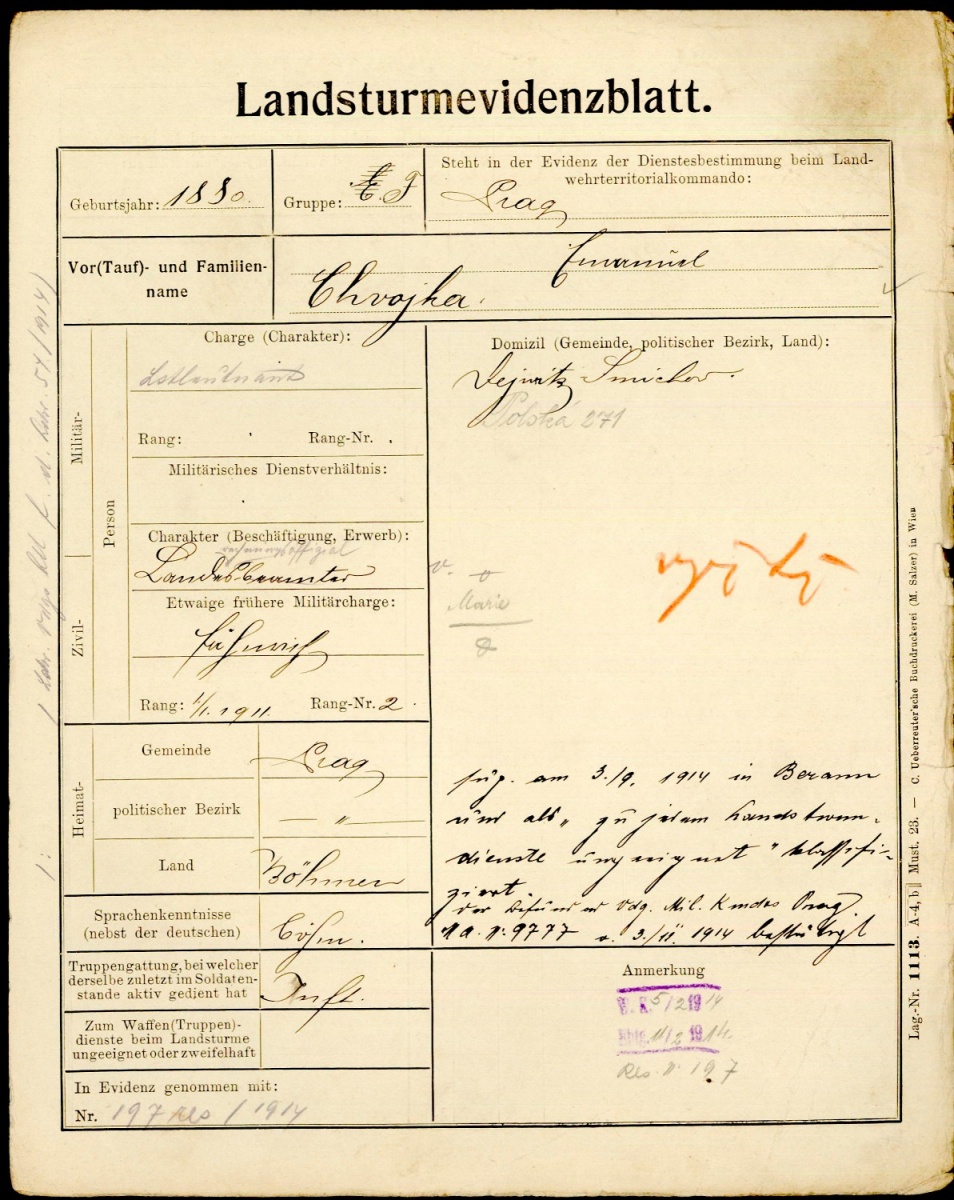 Landsturmevidenzblatt.
Geburtsjahr: 1880.
Gruppe: E. F
Steht in der Evidenz der Dienstesbestimmung beim Land-
wehrterritorialkommando:
Prag
Vor(Tauf)- und Familien-
name
Emanuel
Chvojka.
Militär-
Zivil-
Person
Charge (Charakter):
Lstleutnant
Rang:
Rang-Nr.
Militärisches Dienstverhältnis:
Charakter (Beschäftigung, Erwerb):
rechnungsoffizial
Landesbeamter
Etwaige frühere Militärcharge:
Fähnrich
Rang: 1/1. 1911. Rang-Nr. 2.
Domizil (Gemeinde, politischer Bezirk, Land):
Dejwitz Smichov.
Polská 271
v.
Marie
Heimat-
Gemeinde
Prag
politischer Bezirk
— " —
Land
Böhmen
Sprachenkenntnisse
(nebst der deutschen)
böhm.
Truppengattung, bei welcher
derselbe zuletzt im Soldaten-
stande aktiv gedient hat
Inft.
Zum Waffen(Truppen)-
dienste beim Landsturme
ungeeignet oder zweifelhaft
In Evidenz genommen mit:
Nr. 197 res / 1914
sup. am 3./9. 1914 in Beraun
und als „zu jedem Landsturm-
dienste ungeeignet" klassifi-
ziert.
der Befund Mil. Kmdos Prag
M.A. N. 9777 v. 3./11. 1914 bestätigt
Anmerkung
5/2 1914
11/2 1914.
Res. N. 197
Lag.-Nr. 1113. A-4, b || Must. 23. — C. Ueberreuter'sche Buchdruckerei (M. Salzer) in Wien